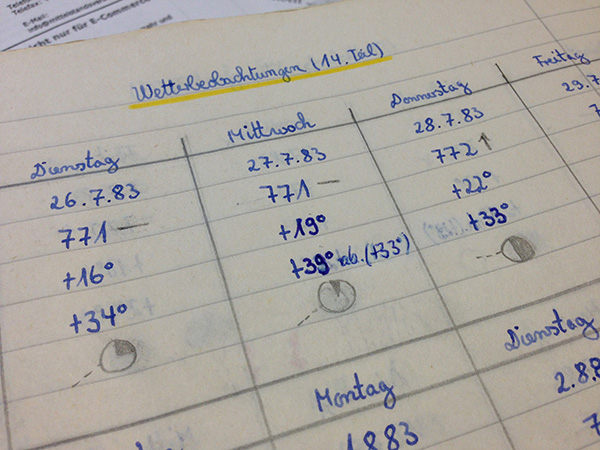 Telefax:
E-Mail:
nicht nur für E-Commerce
Wetterbeobachtungen (14. Teil)
Dienstag
26.7.83
771 —
+16°
+34°
Mittwoch
27.7.83
771 —
+19°
+39° ab. (+33°)
Donnerstag
28.7.83
772 ↑
+22°
+33°
Freitag
29.7
7
Montag
1.8.83
Dienstag
2.8.8
7